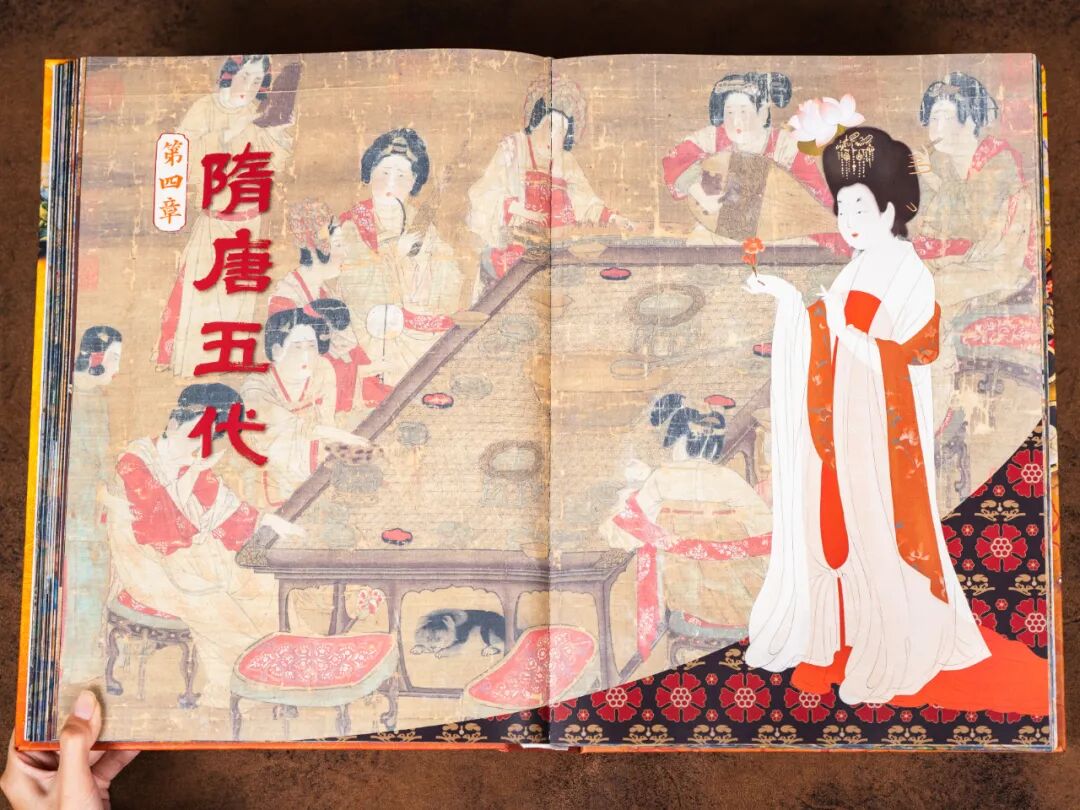 第四章
隋唐五代